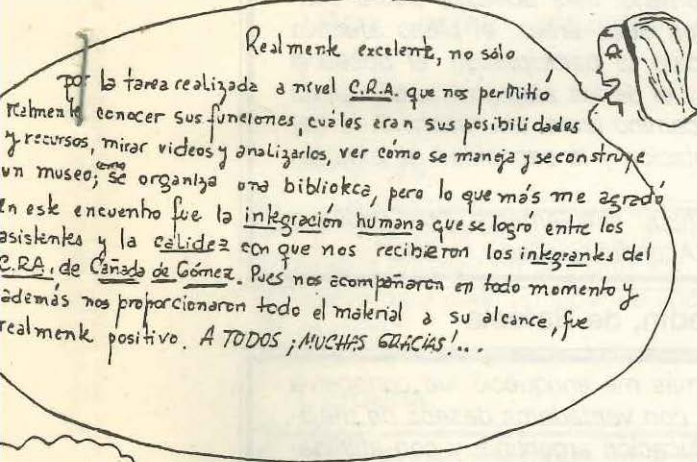 Realmente excelente, no sólo
por la tarea realizada a nivel C.R.A. que nos permitió
realmente conocer sus funciones, cuáles eran sus posibilidades
y recursos, mirar videos y analizarlos, ver cómo se maneja y se construye
un museo; cómo se organiza una biblioteca, pero lo que más me agradó
en este encuentro fue la integración humana que se logró entre los
asistentes y la calidez con que nos recibieron los integrantes del
C.R.A. de Cañada de Gómez. Pues nos acompañaron en todo momento y
además nos proporcionaron todo el material a su alcance, fue
realmente positivo. A TODOS ¡MUCHAS GRACIAS!...